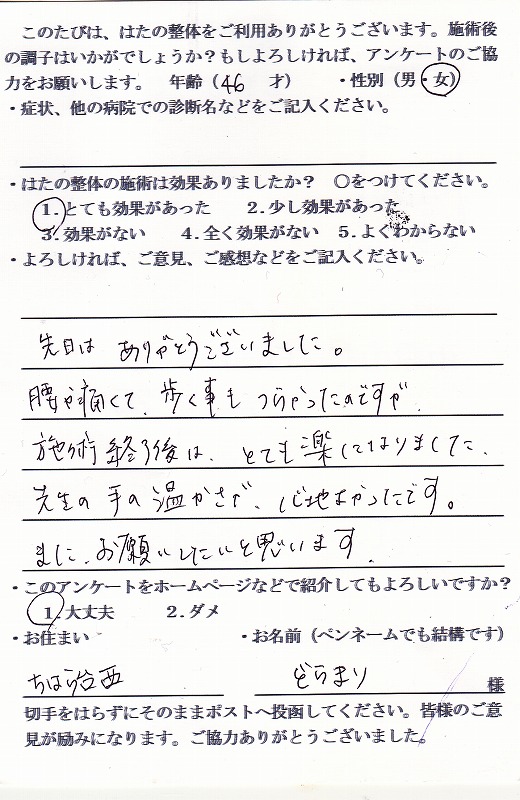 このたびは、はたの整体をご利用ありがとうございます。施術後
の調子はいかがでしょうか？もしよろしければ、アンケートのご協
力をお願いします。　年齢（46　才）　・性別（男・女）
・症状、他の病院での診断名などをご記入ください。
・はたの整体の施術は効果ありましたか？　〇をつけてください。
1.とても効果があった　2.少し効果があった
3.効果がない　4.全く効果がない　5.よくわからない
・よろしければ、ご意見、ご感想などをご記入ください。
先日は ありがとうございました。
腰が痛くて、歩く事も つらかったのですが
施術終了後は、とても楽になりました、
先生の手の温かさが、心地よかったです。
また、お願いしたいと思います.
・このアンケートをホームページなどで紹介してもよろしいですか？
1.大丈夫　2.ダメ
・お住まい　・お名前（ペンネームでも結構です）
ちはら台西　どらまり　様
切手をはらずにそのままポストへ投函してください。皆様のご意
見が励みになります。ご協力ありがとうございました。